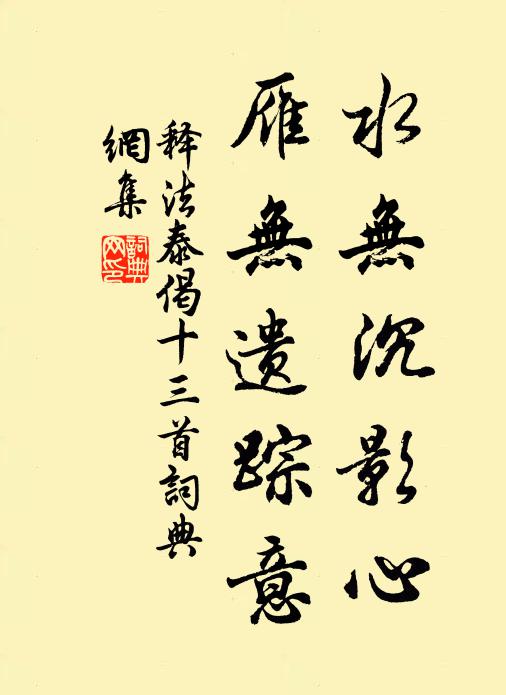 水無沉影心
雁無遗踪意
释法泰偈十三首詞典
網集
詞典
网印